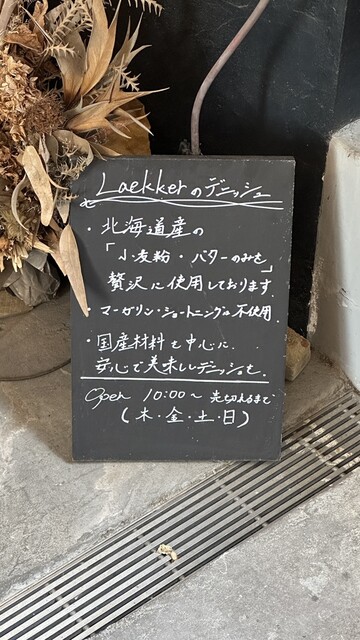 Laekkerのデニッシュ
・北海道産の
「小麦粉・バターのみを」
贅沢に使用しております.
・マーガリン・ショートニングは不使用.
・国産材料を中心に.
安心で美味しいデニッシュを.
Open 10:00〜 売切れるまで
(木・金・土・日)